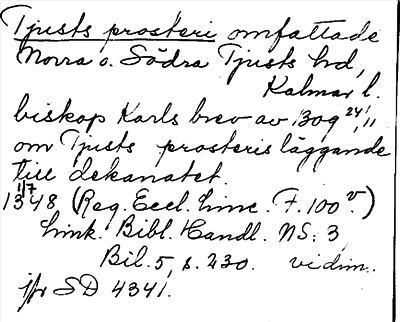 Tjusts prosteri omfattade
Norra o. Södra Tjusts hd,
Kalmar l.
biskop Karls brev av 1309 24/11
om Tjusts prosteris läggande
till dekanatet.
1/7
1348 (Reg. Eccl. Linc. F. 100 v.)
Link. Bibl. Handl. NS: 3,
Bil. 5, s. 230. vidim.
jfr SD 4341.